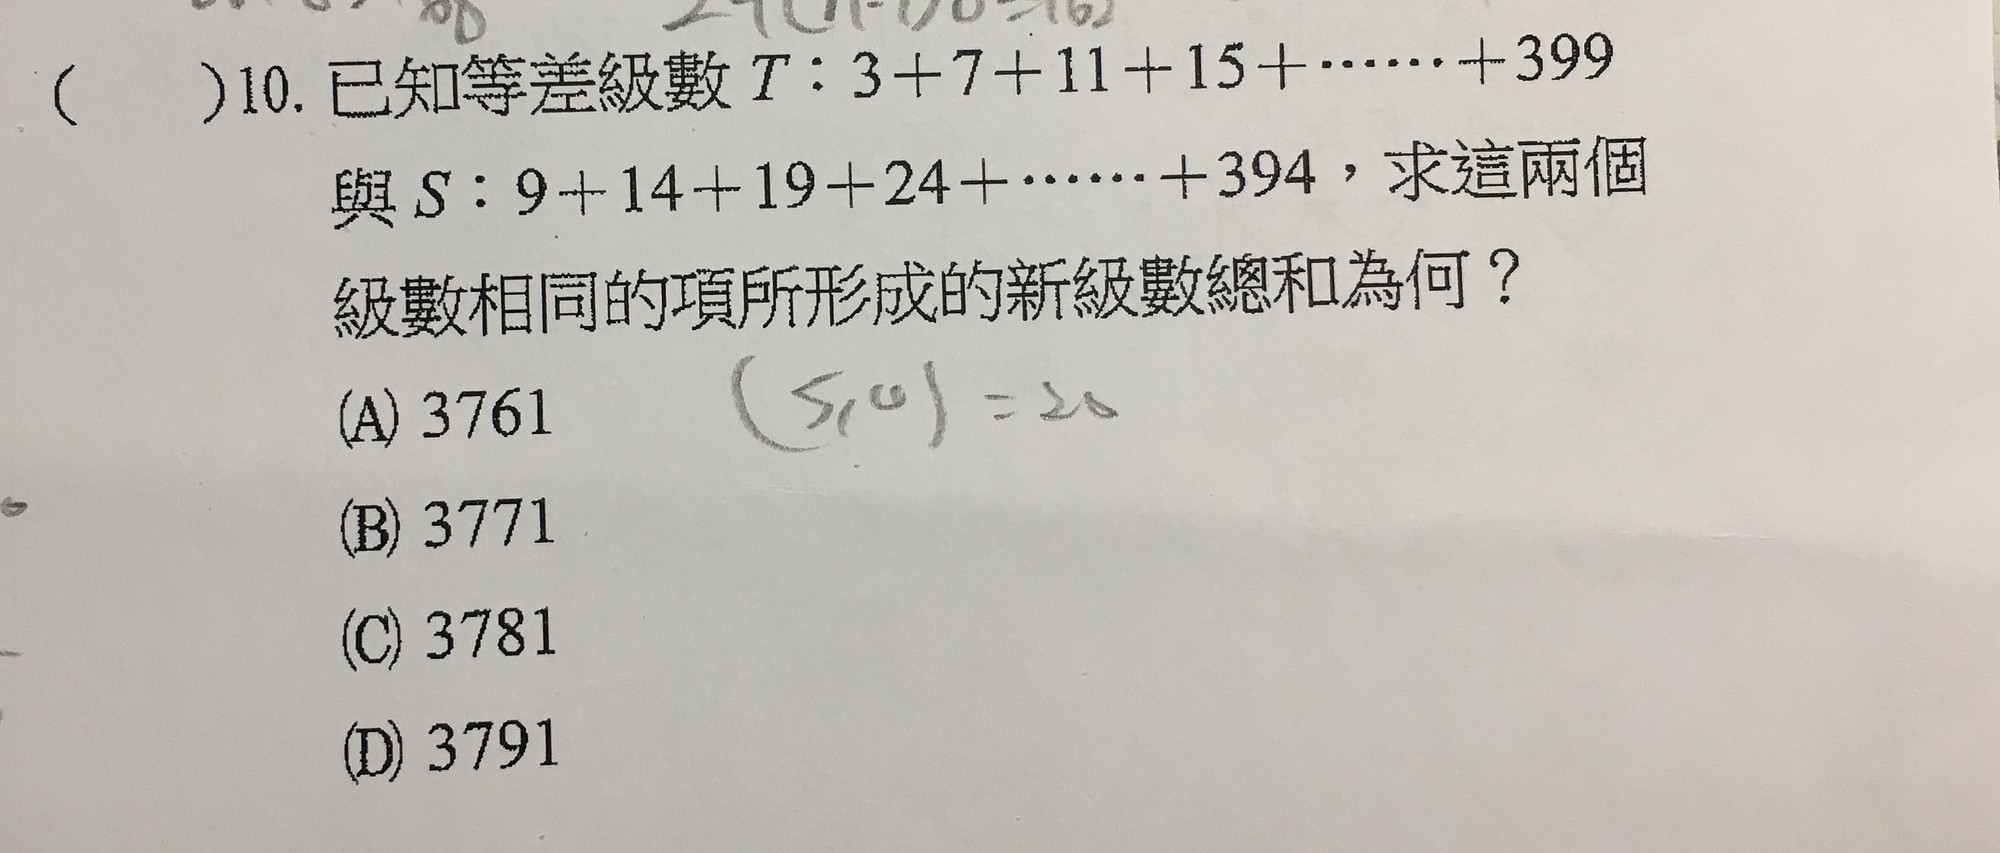 ( )10. 已知等差級數 T:3+7+11+15+……+399
與 S:9+14+19+24+……+394,求這兩個
級數相同的項所形成的新級數總和為何?
(A) 3761
(5,4)=20
(B) 3771
(C) 3781
(D) 3791